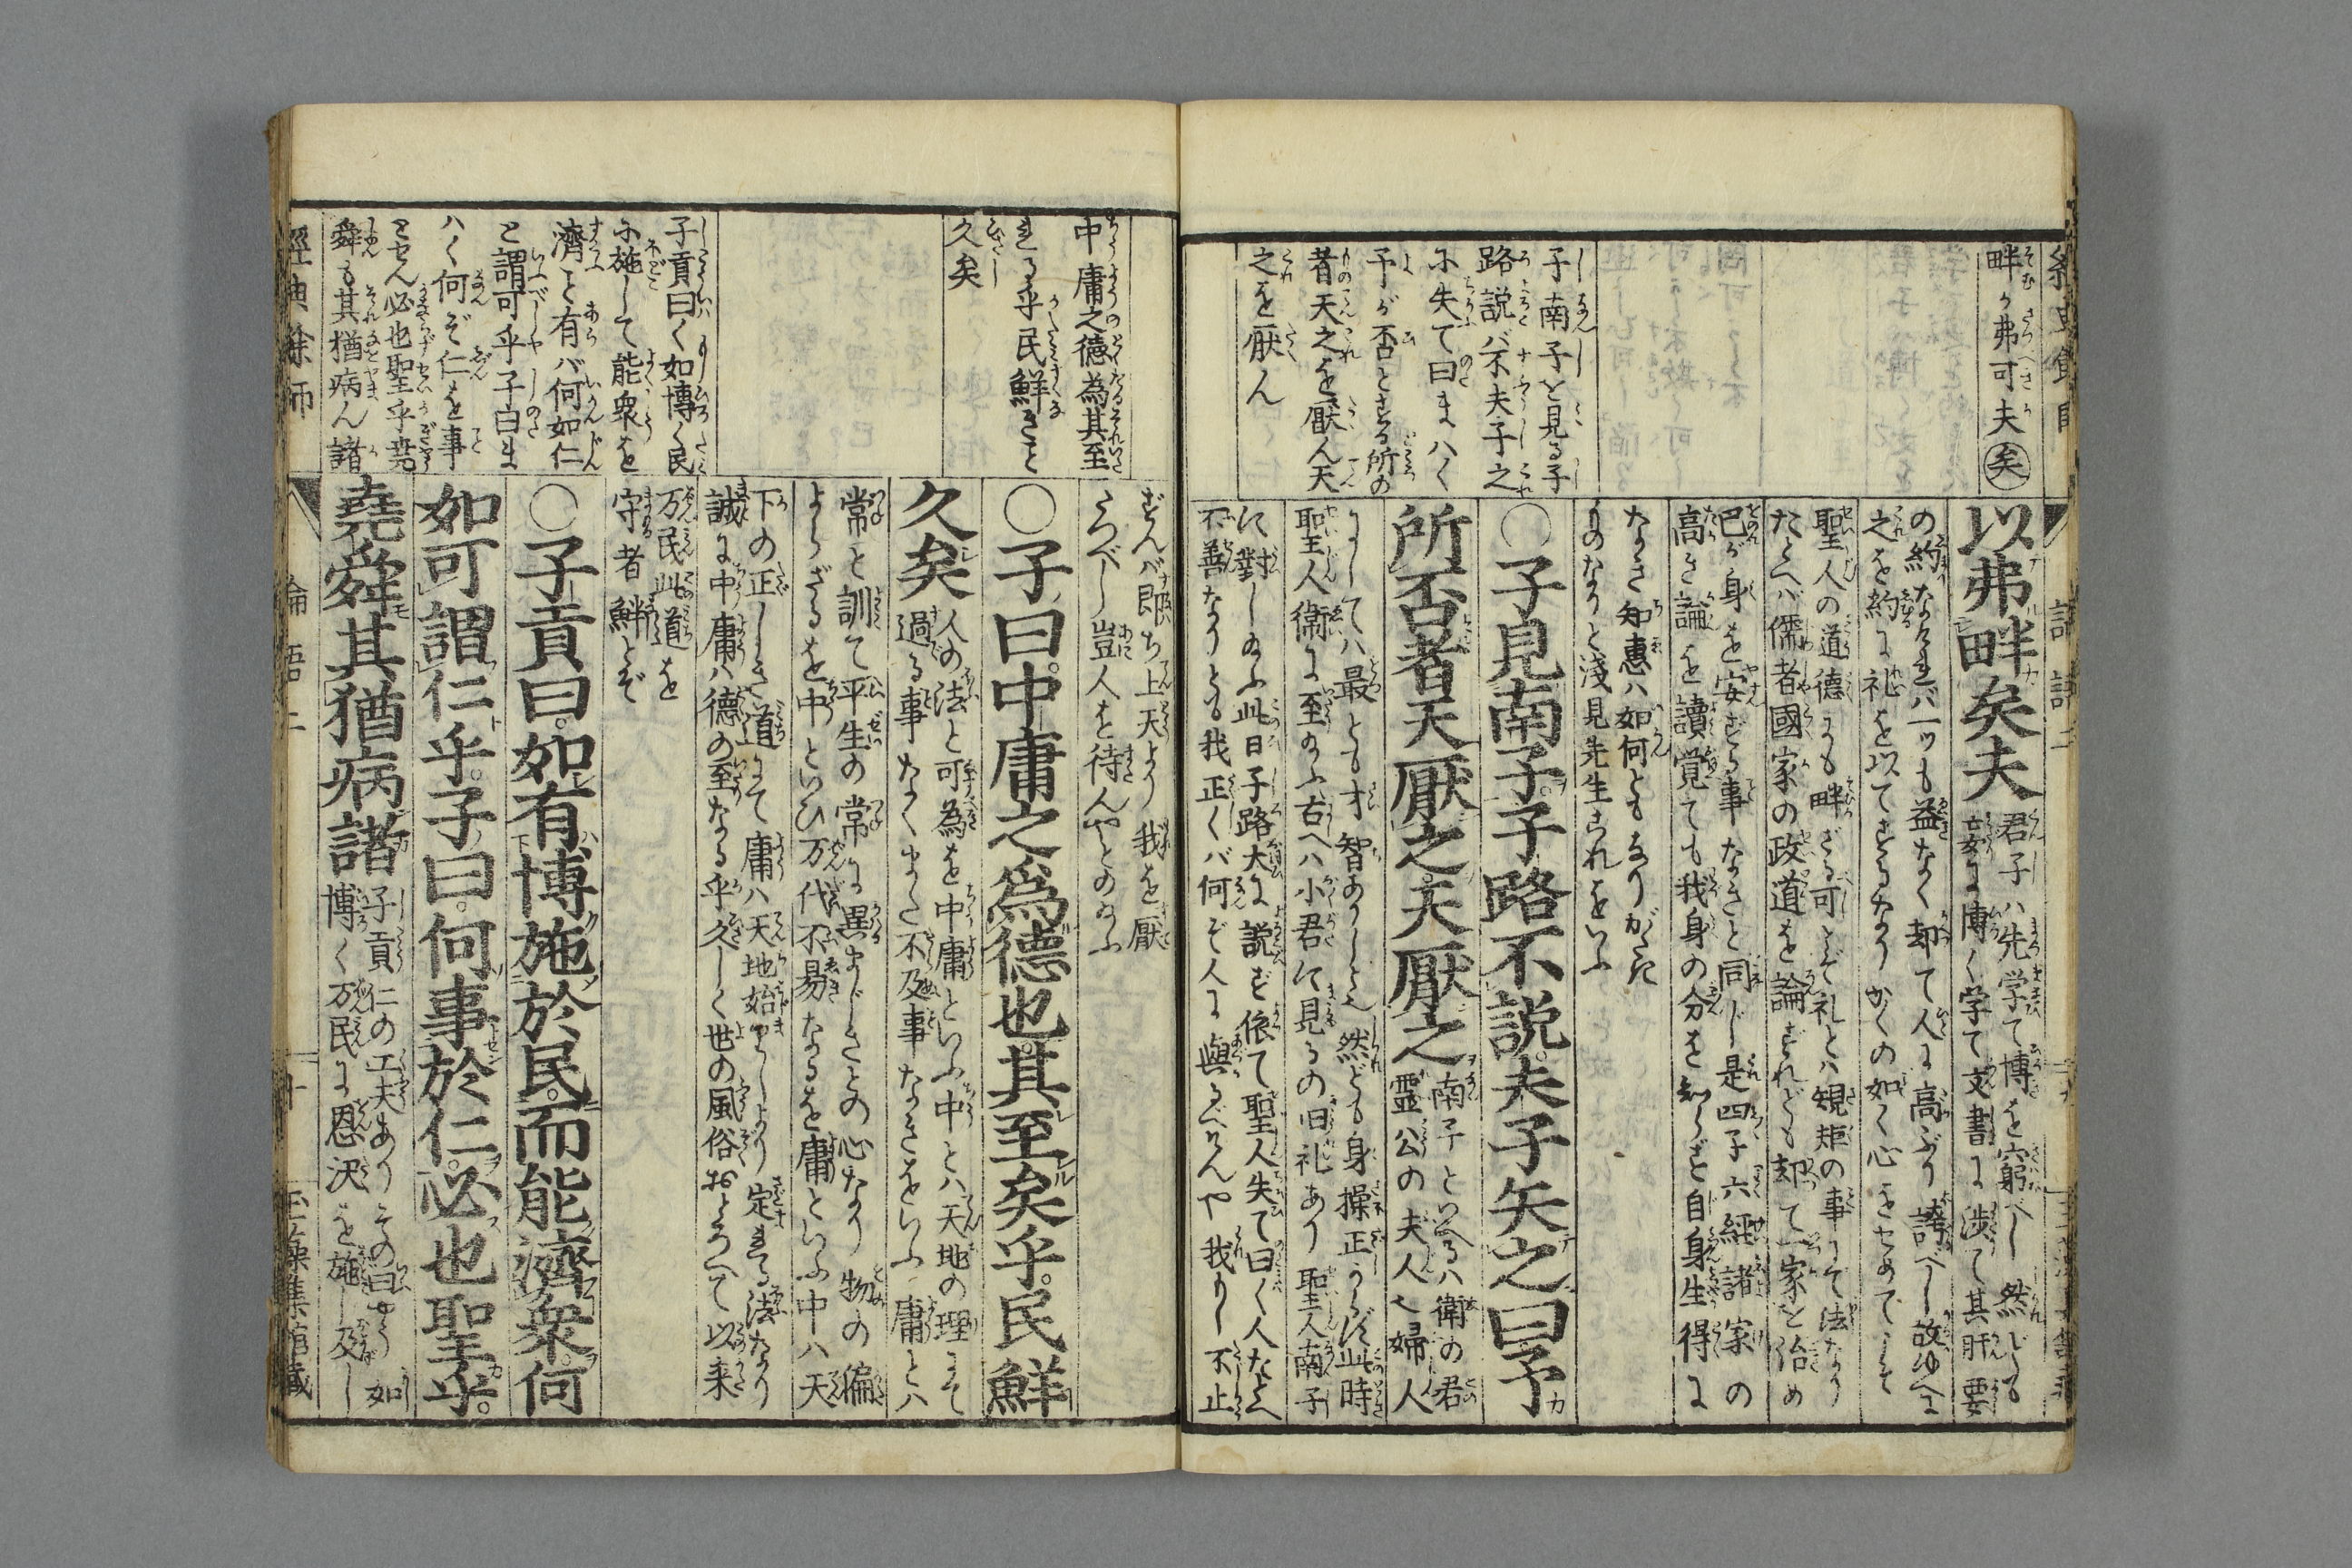 畔か弗可夫矣
子南子を見る子
路説バ不夫子之
に失て曰まハく
予が否とする所の
者天之を厭ん天
之を厭ん
以弗畔矣夫
君子ハ先学て博を窮べし然しても
妄に博く学て文書に渉て其肝要
の約なければ一ツも益なく却て人に高ぶり誇べし故ゆへに
之を約に礼を以てするなりかくの如く心をせめてこそ
聖人の道徳にも畔ざる可しぞ礼とハ規矩の事にて法なり
たとへバ儒者國家の政道を論ずれども却て一家を治め
己が身を安ずる事なきと同じ是四子六經諸家の
高き論を讀覚ても我身の分を知らず自身生得に
なき知惠ハ如何ともなりがたき
ものなりと淺見先生これをいふ
○子見南子子路不説夫子矢之曰予
所否者天厭之天厭之
南子といへるハ衛の君
靈公の夫人也婦人
にしてハ最とも才智ありしと也然ども身操正からず此時
聖人衛に至給ふ古へハ小君に見るの旧礼あり聖人南子
に對し給ふ此日子路大に説ず依て聖人失て曰く人たとへ
不善なりとも我正くバ何ぞ人に與るべけんや我もし不正
中庸之徳為其至
れる乎民鮮きこと
久矣
子貢曰く如博く民
に施して能衆を
濟こと有バ何如仁
と謂可乎子白ま
ハく何ぞ仁を事
とせん必也聖乎尭
舜も其猶病ん諸
ずんバ即ち上天より我を厭
たつべし豈人を待んやとの給ふ
○子曰中庸之爲德也其至矣乎民鮮
久矣
人の法と可為を中庸といふ中とハ天地の理にて
過る事なくまた不及事なきをいふ庸とハ
常と訓て平生の常に異まじきとの心なり物の偏
よらざるを中といひ万代不易なるを庸といふ中ハ天
下の正しき道にて庸ハ天地始りしより定れる法なり
誠に中庸ハ德の至なる乎久しく世の風俗おとろへて以来
万民此道を
守者鮮とぞ
○子貢曰如有博施於民而能濟衆何
如可謂仁乎子曰何事於仁必也聖乎
堯舜其猶病諸
子貢仁の工夫ありその曰やう如
博く万民に恩沢を施し及し
經典餘師
論語二